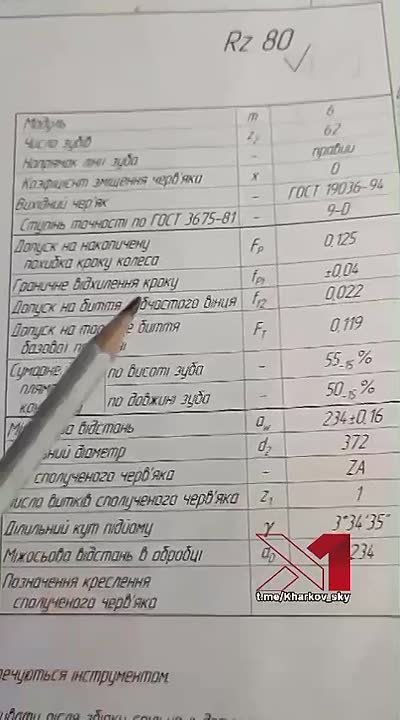 Rz 80
Модуль m 6
Число зубів z₂ 62
Напрямок лінії зуба - правий
Коефіцієнт зміщення черв'яка x 0
Вихідний черв'як - ГОСТ 19036-94
Ступінь точності по ГОСТ 3675-81 - 9-D
Допуск на накопичену
похибка кроку колеса Fp 0,125
Граничне відхилення кроку fpt ±0,04
Допуск на биття зубчастого вінця 0,022
Допуск на биття 0,119
базової
Сумарне по висоті зуба - 55₋₁₅%
по довжині зуба - 50₋₁₅%
відстань aw 234±0,16
діаметр d₂ 372
сполученого черв'яка - ZA
Число витків сполученого черв'яка z₁ 1
Ділильний кут підйому γ 3°34'35"
Міжосьова відстань в обробці a₀ 234
Позначення креслення
сполученого черв'яка
X1
t.me/Kharkov_sky
інструментом.
після збірки